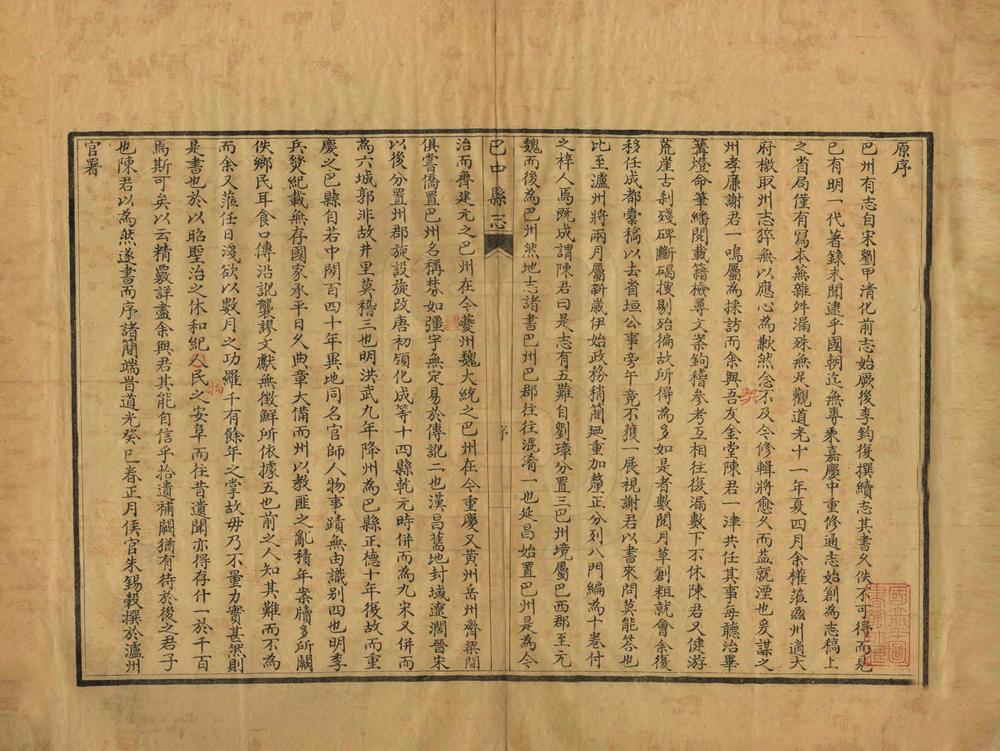 原序
巴州有志自宋劉甲清化前志始厥後李鈞復撰續志其書久佚不可得而見
已有明一代著錄未聞逮乎國朝迄無專乘嘉慶中重修通志始創為志稿上
之省局僅有寫本蕪雜舛漏殊無足觀道光十一年夏四月余權蒞茲州適大
府檄取州志猝無以應心為歉然念不及今修輯將愈久而益就湮也爰謀之
州孝廉謝君一鳴屬為採訪而余與吾友金堂陳君一津共任其事每聽治畢
篝燈命筆繙閱載籍檢尋文案鉤稽參考互相往復漏數下不休陳君又健游
荒崖古刹殘碑斷碣搜剔殆徧故所得為多如是者數閱月草創粗就會余復
移任成都橐稿以去省垣公事旁午竟不獲一展視謝君以書來問莫能答也
比至瀘州將兩月屬新歲伊始政務稍簡廼重加釐正分列八門編為十卷付
之梓人焉既成謂陳君曰是志有五難自劉璋分置三巴州境屬巴西郡至元
魏而後為巴州然地志諸書巴州巴郡往往混淆一也延昌始置巴州是為今
巴中縣志
序
治而齊建元之巴州在今夔州魏大統之巴州在今重慶又黃州岳州齊梁間
俱嘗僑置巴州名稱棼如彊字無定易於傳訛二也漢昌舊地封域遼濶晉宋
以後分置州郡旋設旋改唐初領化成等十四縣乾元時併而為九宋又併而
為六城郭非故井里莫稽三也明洪武九年降州為巴縣正德十年復故而重
慶之巴縣自若中閒百四十年異地同名官師人物事蹟無由識别四也明季
兵燹紀載無存國家承平日久典章大備而州以教匪之亂積年案牘多所闕
佚鄉民耳食口傳沿訛襲謬文獻無徵鮮所依據五也前之人知其難而不為
而余又蒞任日淺欲以數月之功羅千有餘年之掌故毋乃不量力實甚然則
是書也於以昭聖治之休和紀民之安阜而往昔遺聞亦得存什一於千百
焉斯可矣以云精覈詳盡余與君其能自信乎拾遺補闕猶有待於後之君子
也陳君以為然遂書而序諸簡端時道光癸巳春正月侯官朱錫穀撰於瀘州
官署